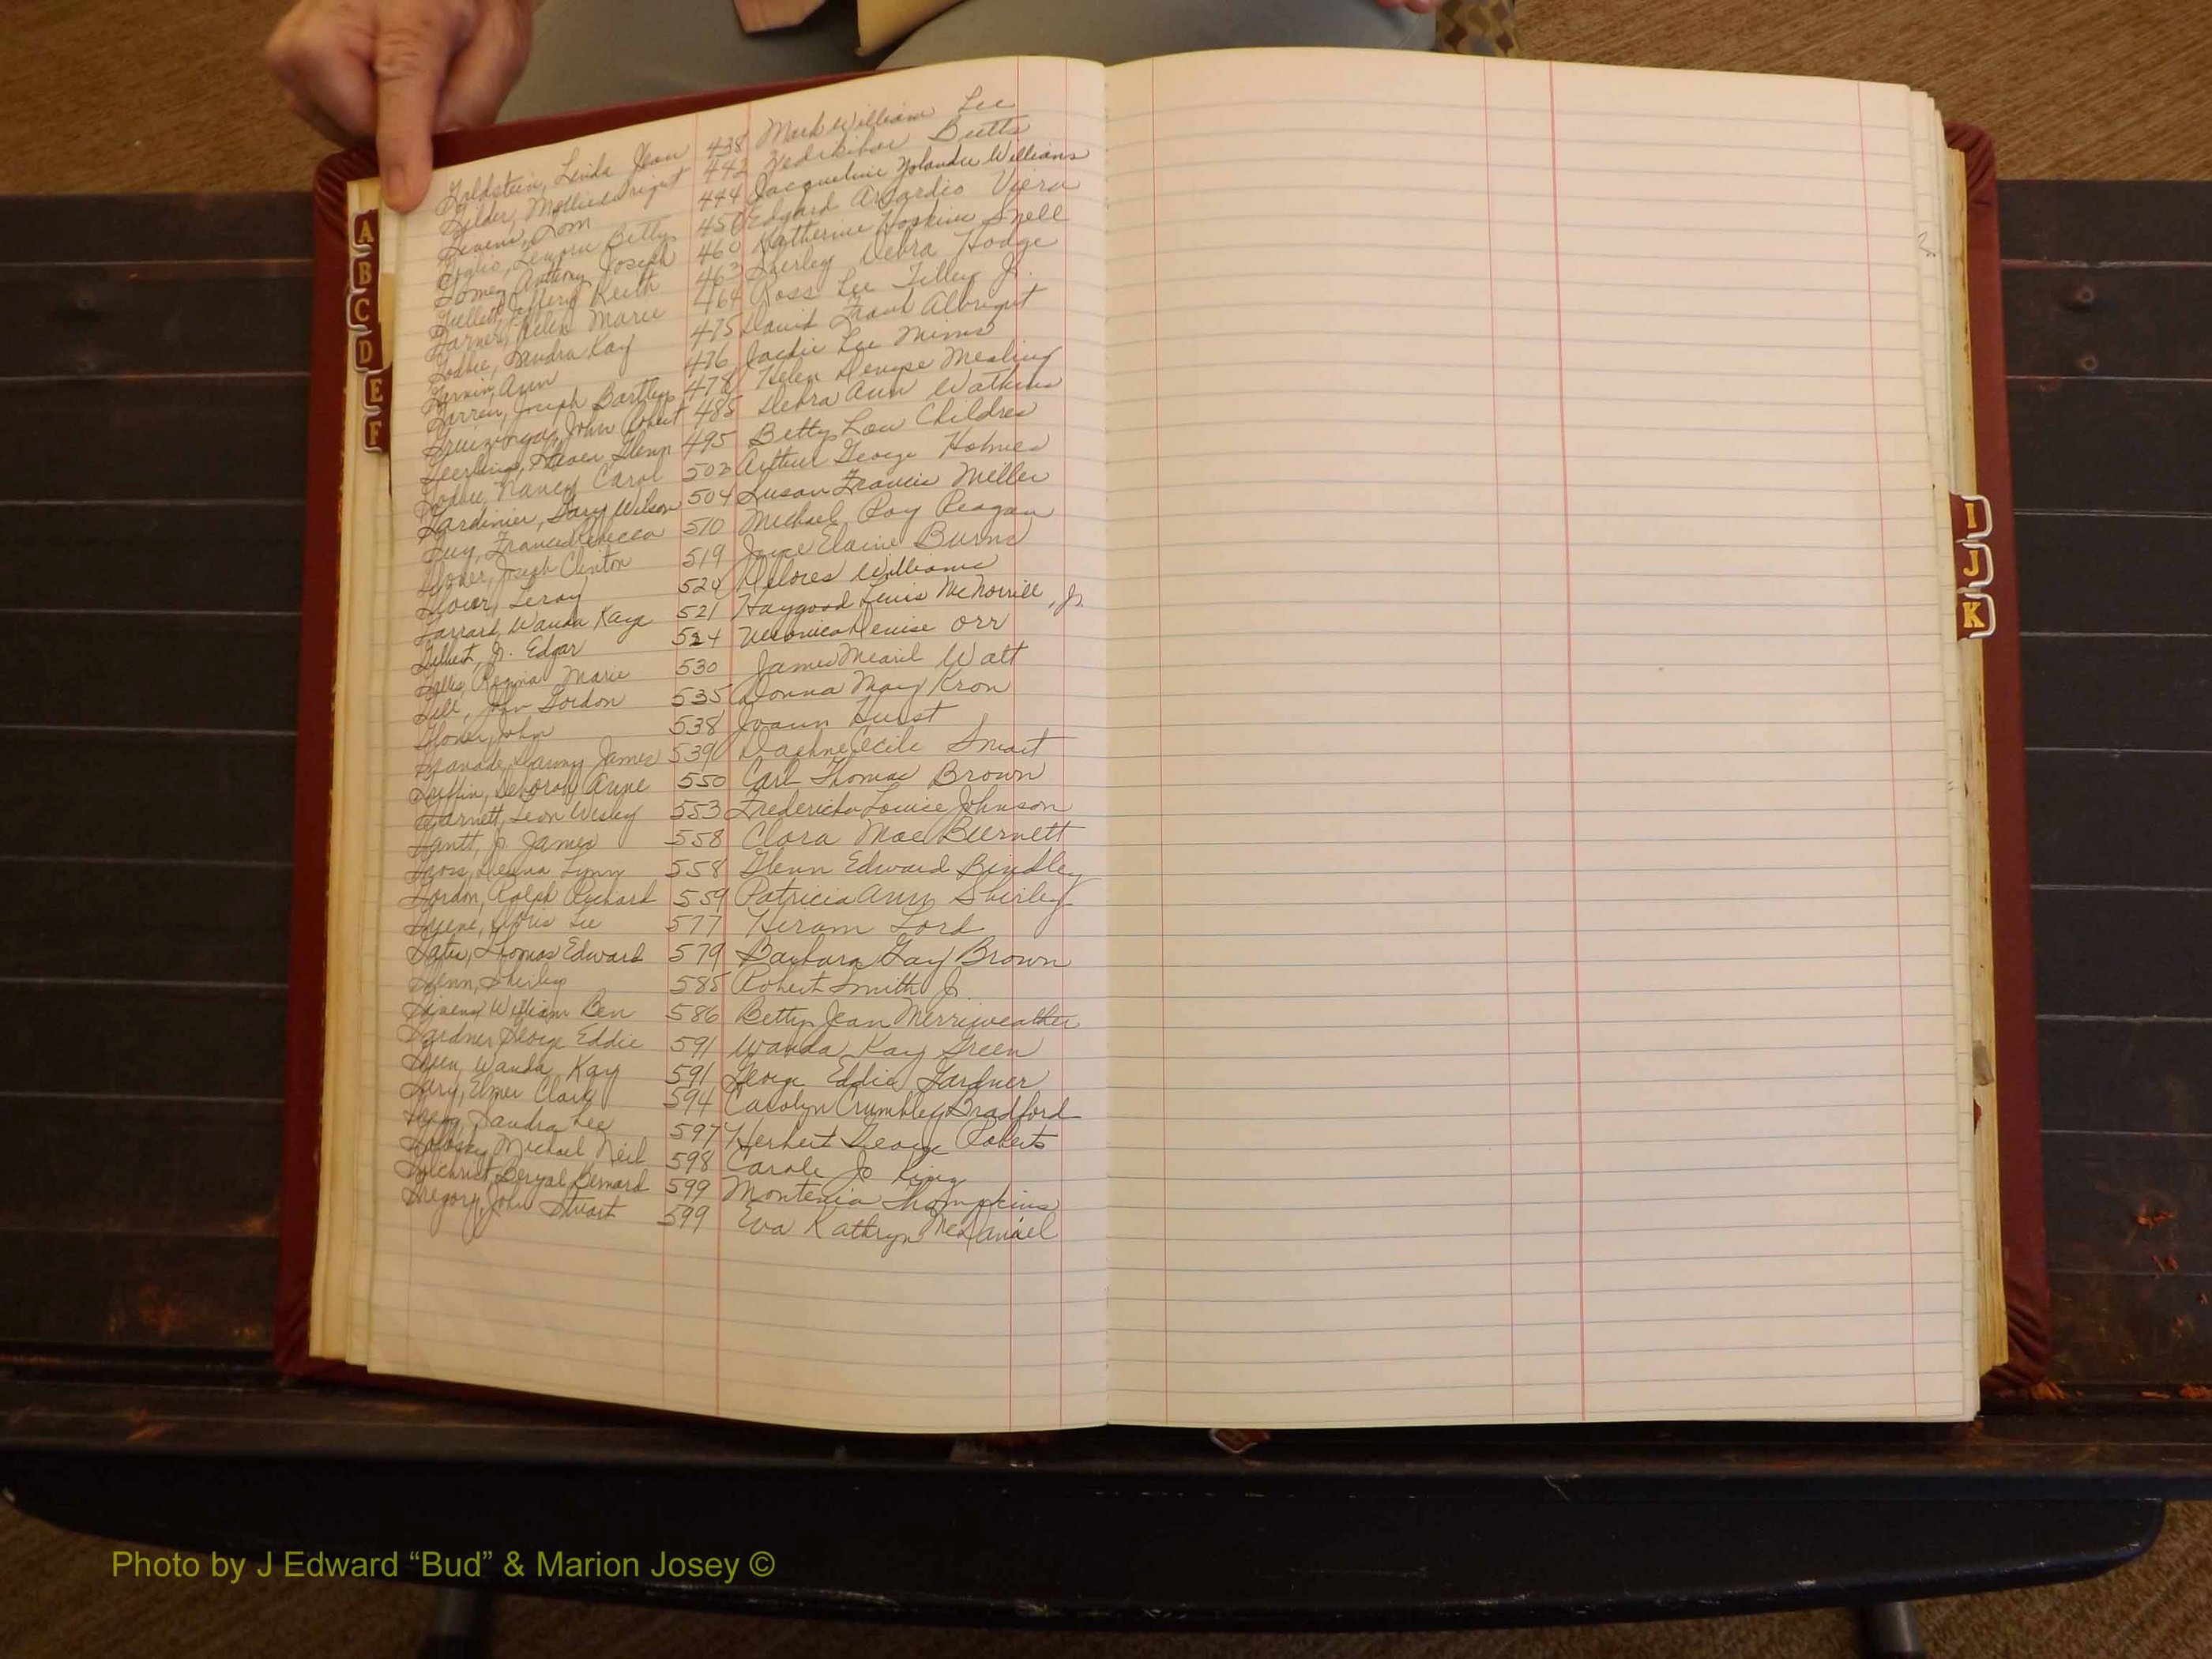 Goldstein, Linda Jean 438 Mark William Lee
Gilder, Mollie Wright 442 Zedekihar Butts
Givens, Tom 444 Jacqueline Yolande Williams
Goglio, Lenora Betty 450 Edgard Arcardio Viera
Gomez, Anthony Joseph 460 Katherine Hoskins Snell
Gullett, Jeffery Keith 463 Sherley Debra Hodge
Garner, Helen Marie 464 Ross Lee Tilley Jr.
Godbee, Sandra Kay 475 David Frank Albright
Ann 476 Jackie Lee Mims
Garren, Joseph Bartley 478 Helen Denyse Mealing
Gruizinga, John Robert 485 Debra Ann Watkins
Geerlings, Steven Glenn 495 Betty Lou Childres
Godbee, Nancy Carol 503 Arthur George Holmes
Gardinier, Gary Wilson 504 Susan Francis Miller
Guy, Frances Rebecca 510 Michael Roy Reagan
Glover, Joseph Clinton 519 Joyce Elaine Burns
Glover, Leroy 520 Delores Williams
Garrard, Wanda Kaye 521 Haygood Lewis McNorrill, Jr.
Gilbert, Jr. Edgar 524 Veronica Denise Orr
Gillis, Regina Marie 530 James Mearil Watt
Gill, John Gordon 535 Donna May Kron
Glover, John 538 Joann Hurst
Granade, Danny James 539 Daphne Cecile Smart
Griffin, Deborah Anne 550 Carl Thomas Brown
Garnett, Leon Wesley 553 Fredericka Louise Johnson
Gantt, Jr. James 558 Clara Mae Burnett
Goss, Deena Lynn 558 Glenn Edward Bindley
Gordon, Ralph Richard 559 Patricia Ann Shirley
Greene, Doris Lee 577 Hiram Lord
Gates, Thomas Edward 579 Barbara Gay Brown
Glenn, Shirley 585 Robert Smith Jr.
Givens, William Ben 586 Betty Jean Merriweather
Gardner, George Eddie 591 Wanda Kay Green
Green, Wanda Kay 591 George Eddie Gardner
Gary, Elmer Clark 594 Carolyn Crumbley Bradford
Gregg, Sandra Lee 597 Herbert George Roberts
Michael Neil 598 Carole Jo King
Gilchrist, Beryal Bernard 599 Montenia Thompkins
Gregory, John Stuart 599 Eva Kathryn McDaniel
A
B
C
D
E
F
I
J
K
Photo by J Edward “Bud” & Marion Josey ©